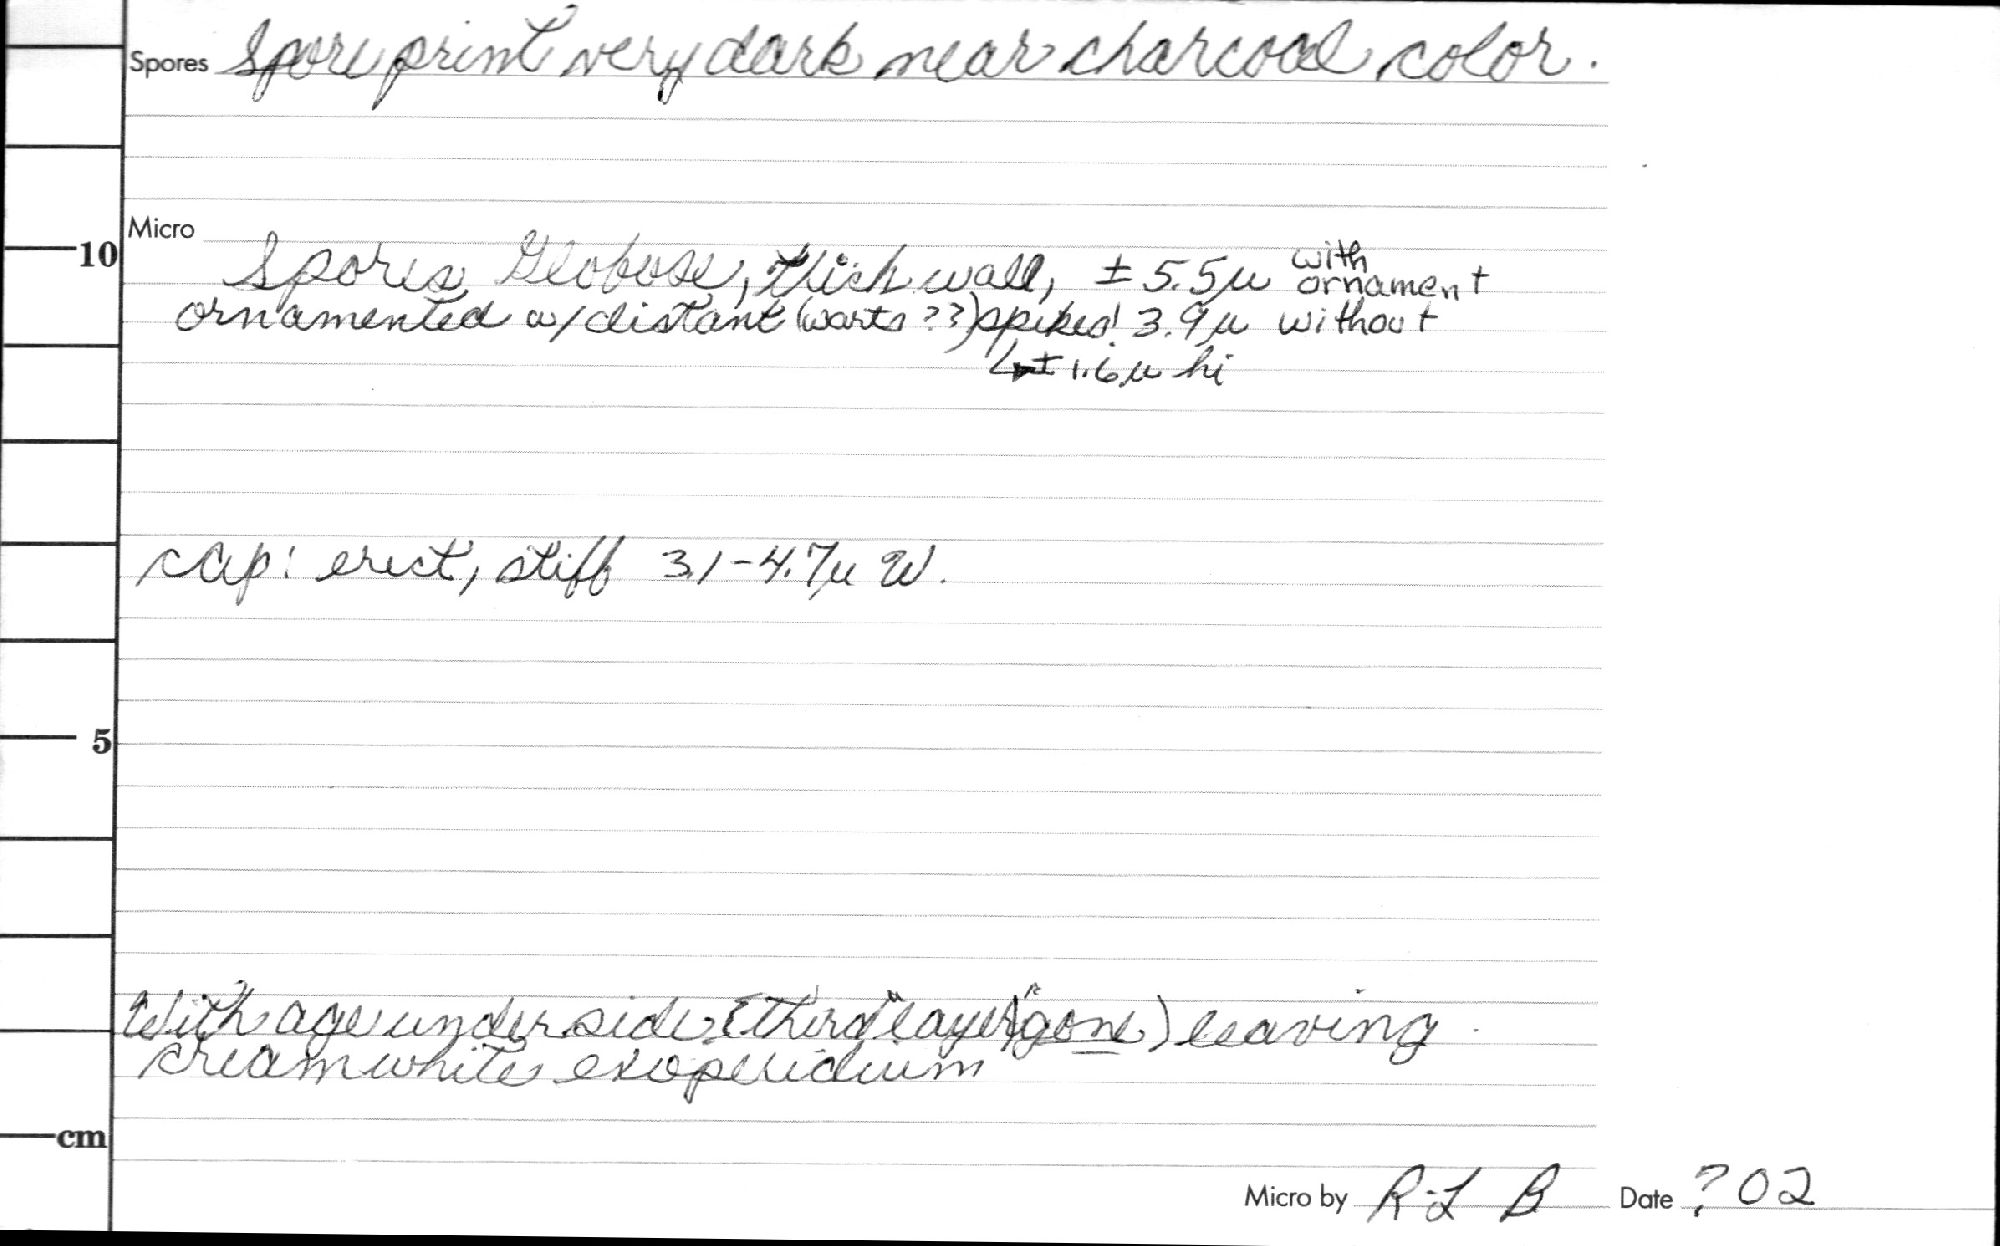 Spores Spore print very dark near charcoal color.
Micro
10
Spores Globose, thick wall, ± 5.5µ with ornament
ornamented w/ distant (warts ??) spikes! 3.9µ without
± 1.6µ hi
cap: erect, stiff 3.1-4.7µ W.
5
With age underside ("third layer" gone) leaving
cream white exoperidium
cm
Micro by RLB Date ? 02